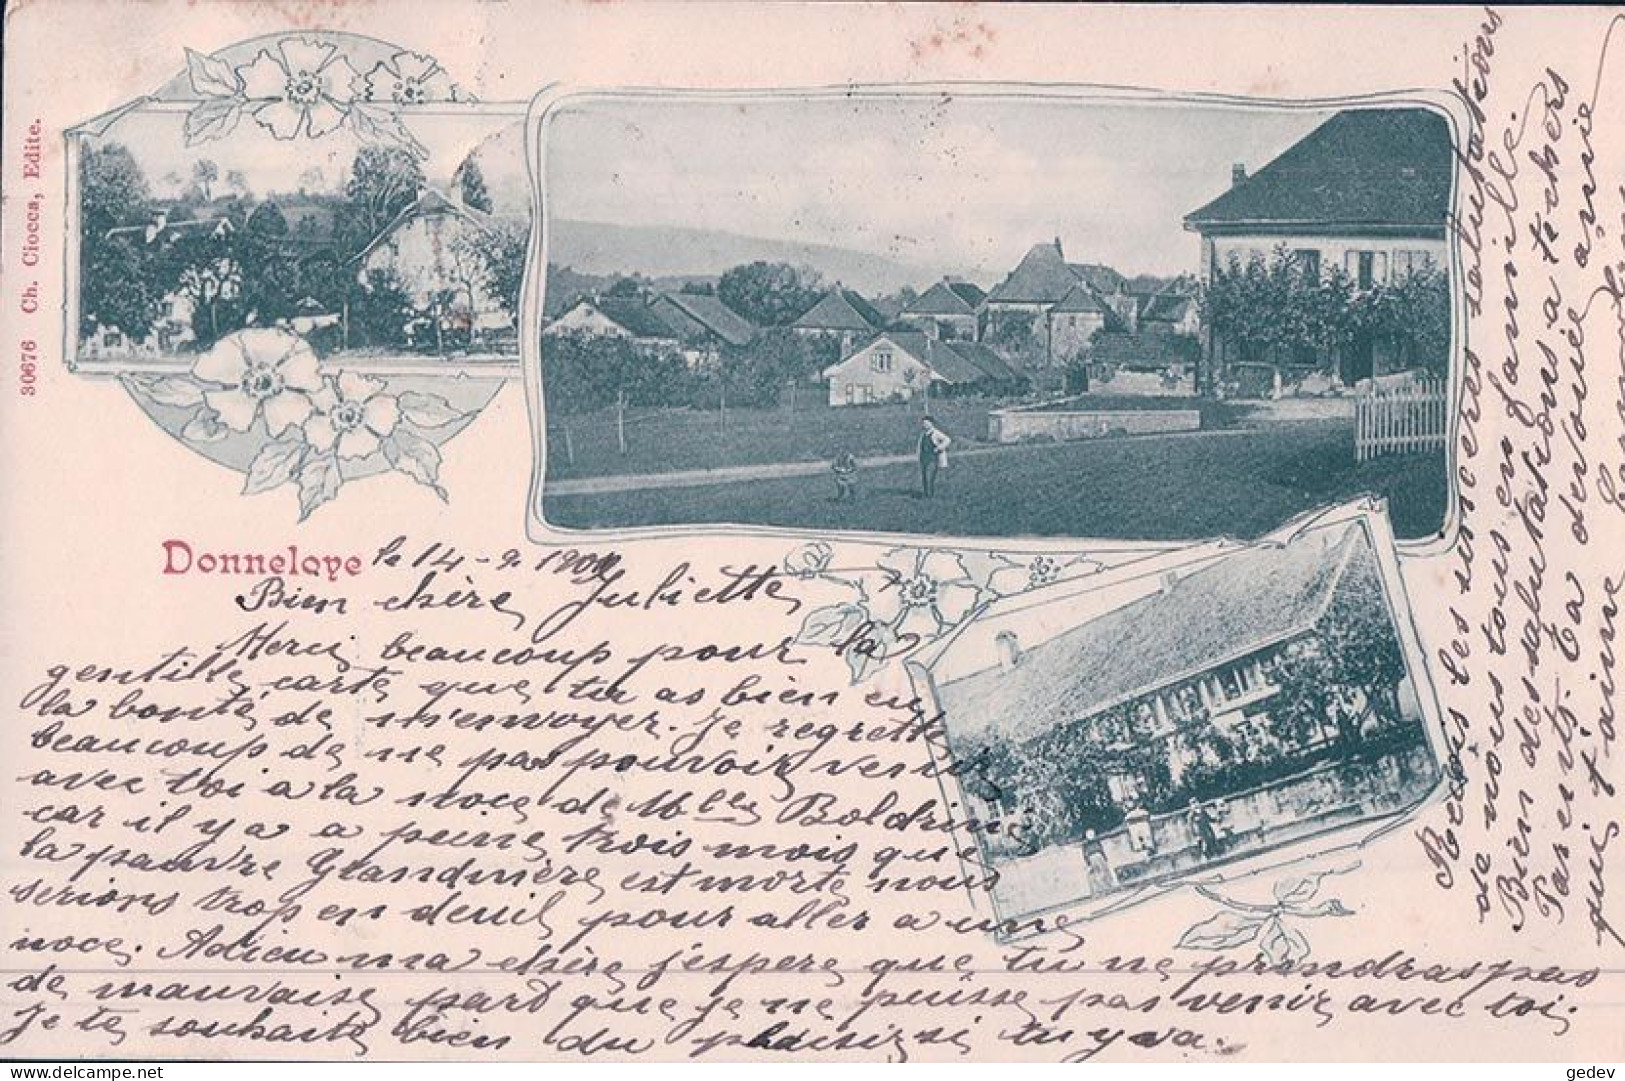 30676 Ch. Ciocca, Edite.
Donneloye le 14-9 190
Bien chère Juliette,
Merci beaucoup pour la
gentille carte que tu as bien eu
la bonté de m'envoyer. Je regrette
beaucoup de ne pas pouvoir venir
avec toi a la noce de Mlle Boldrini
car il y a a peine trois mois que
la pauvre Grandmère est morte nous
serions trop en deuil pour aller a une
noce. Adieu ma chère j'espère que tu ne prendras pas
de mauvaise part que je ne puisse pas venir avec toi.
Je te souhaite bien du plaisir si tu y va.
Reçois les sincères salutations
de nous tous en famille.
Bien des salutations a te chers
Parents. Ta dévouée amie
qui t'aime
gedev